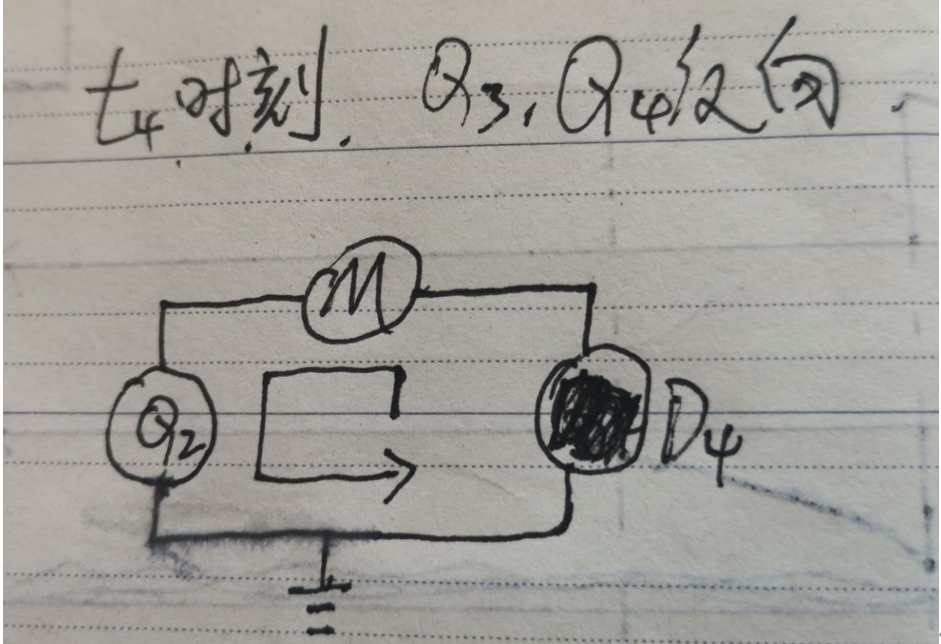 t4时刻. Q3, Q4反向.
M
Q2
D4